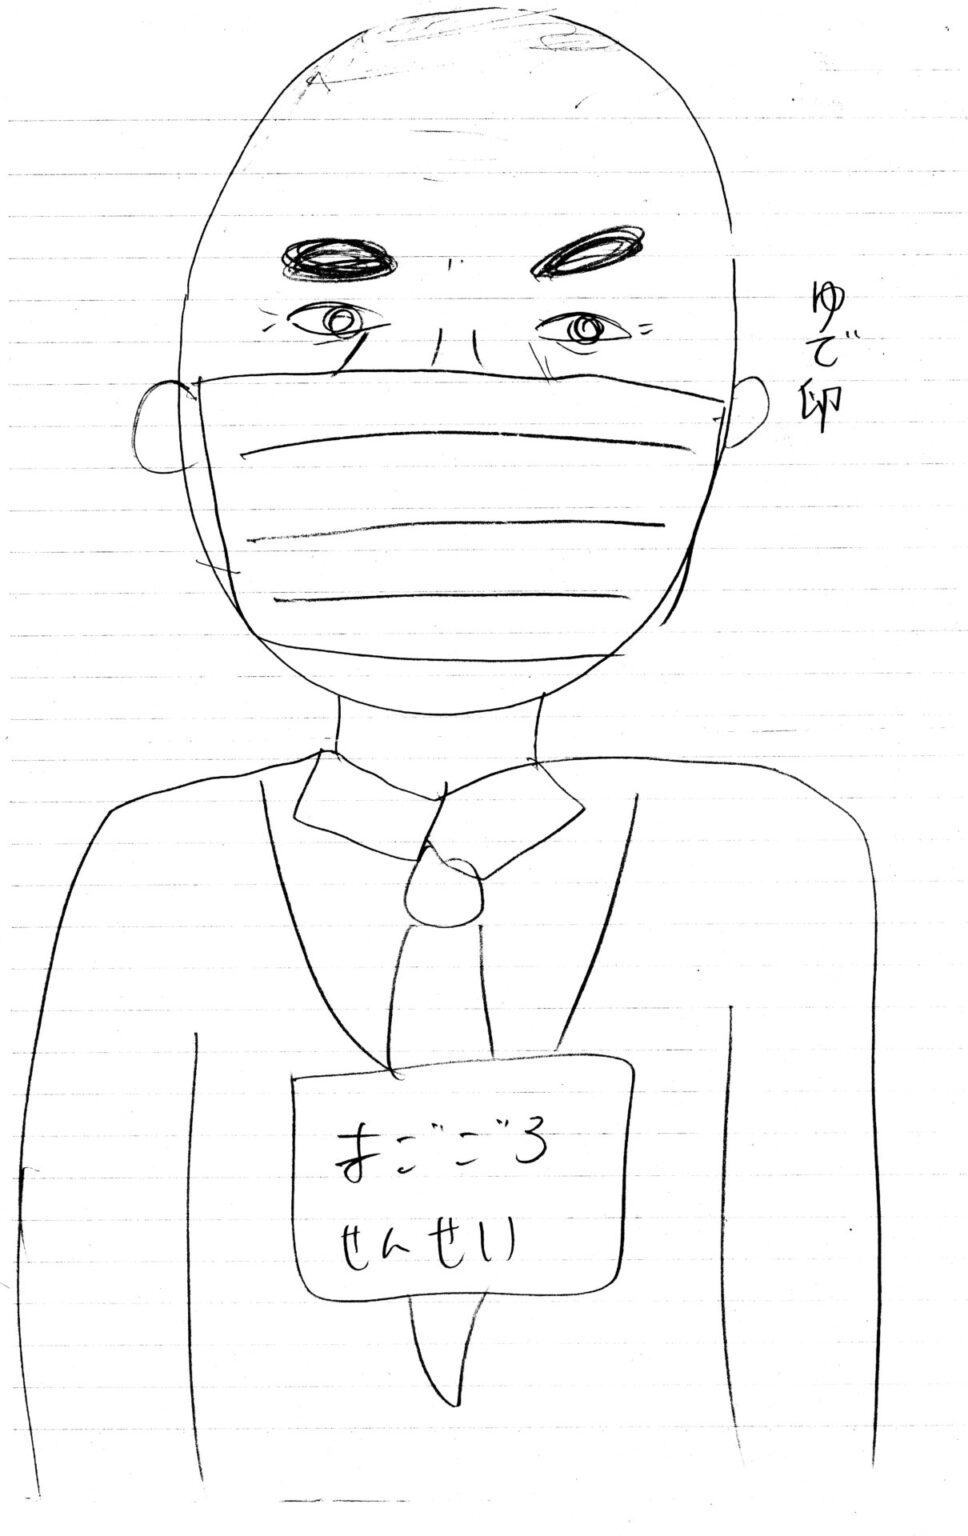 ゆで印
まごごろ
せんせい